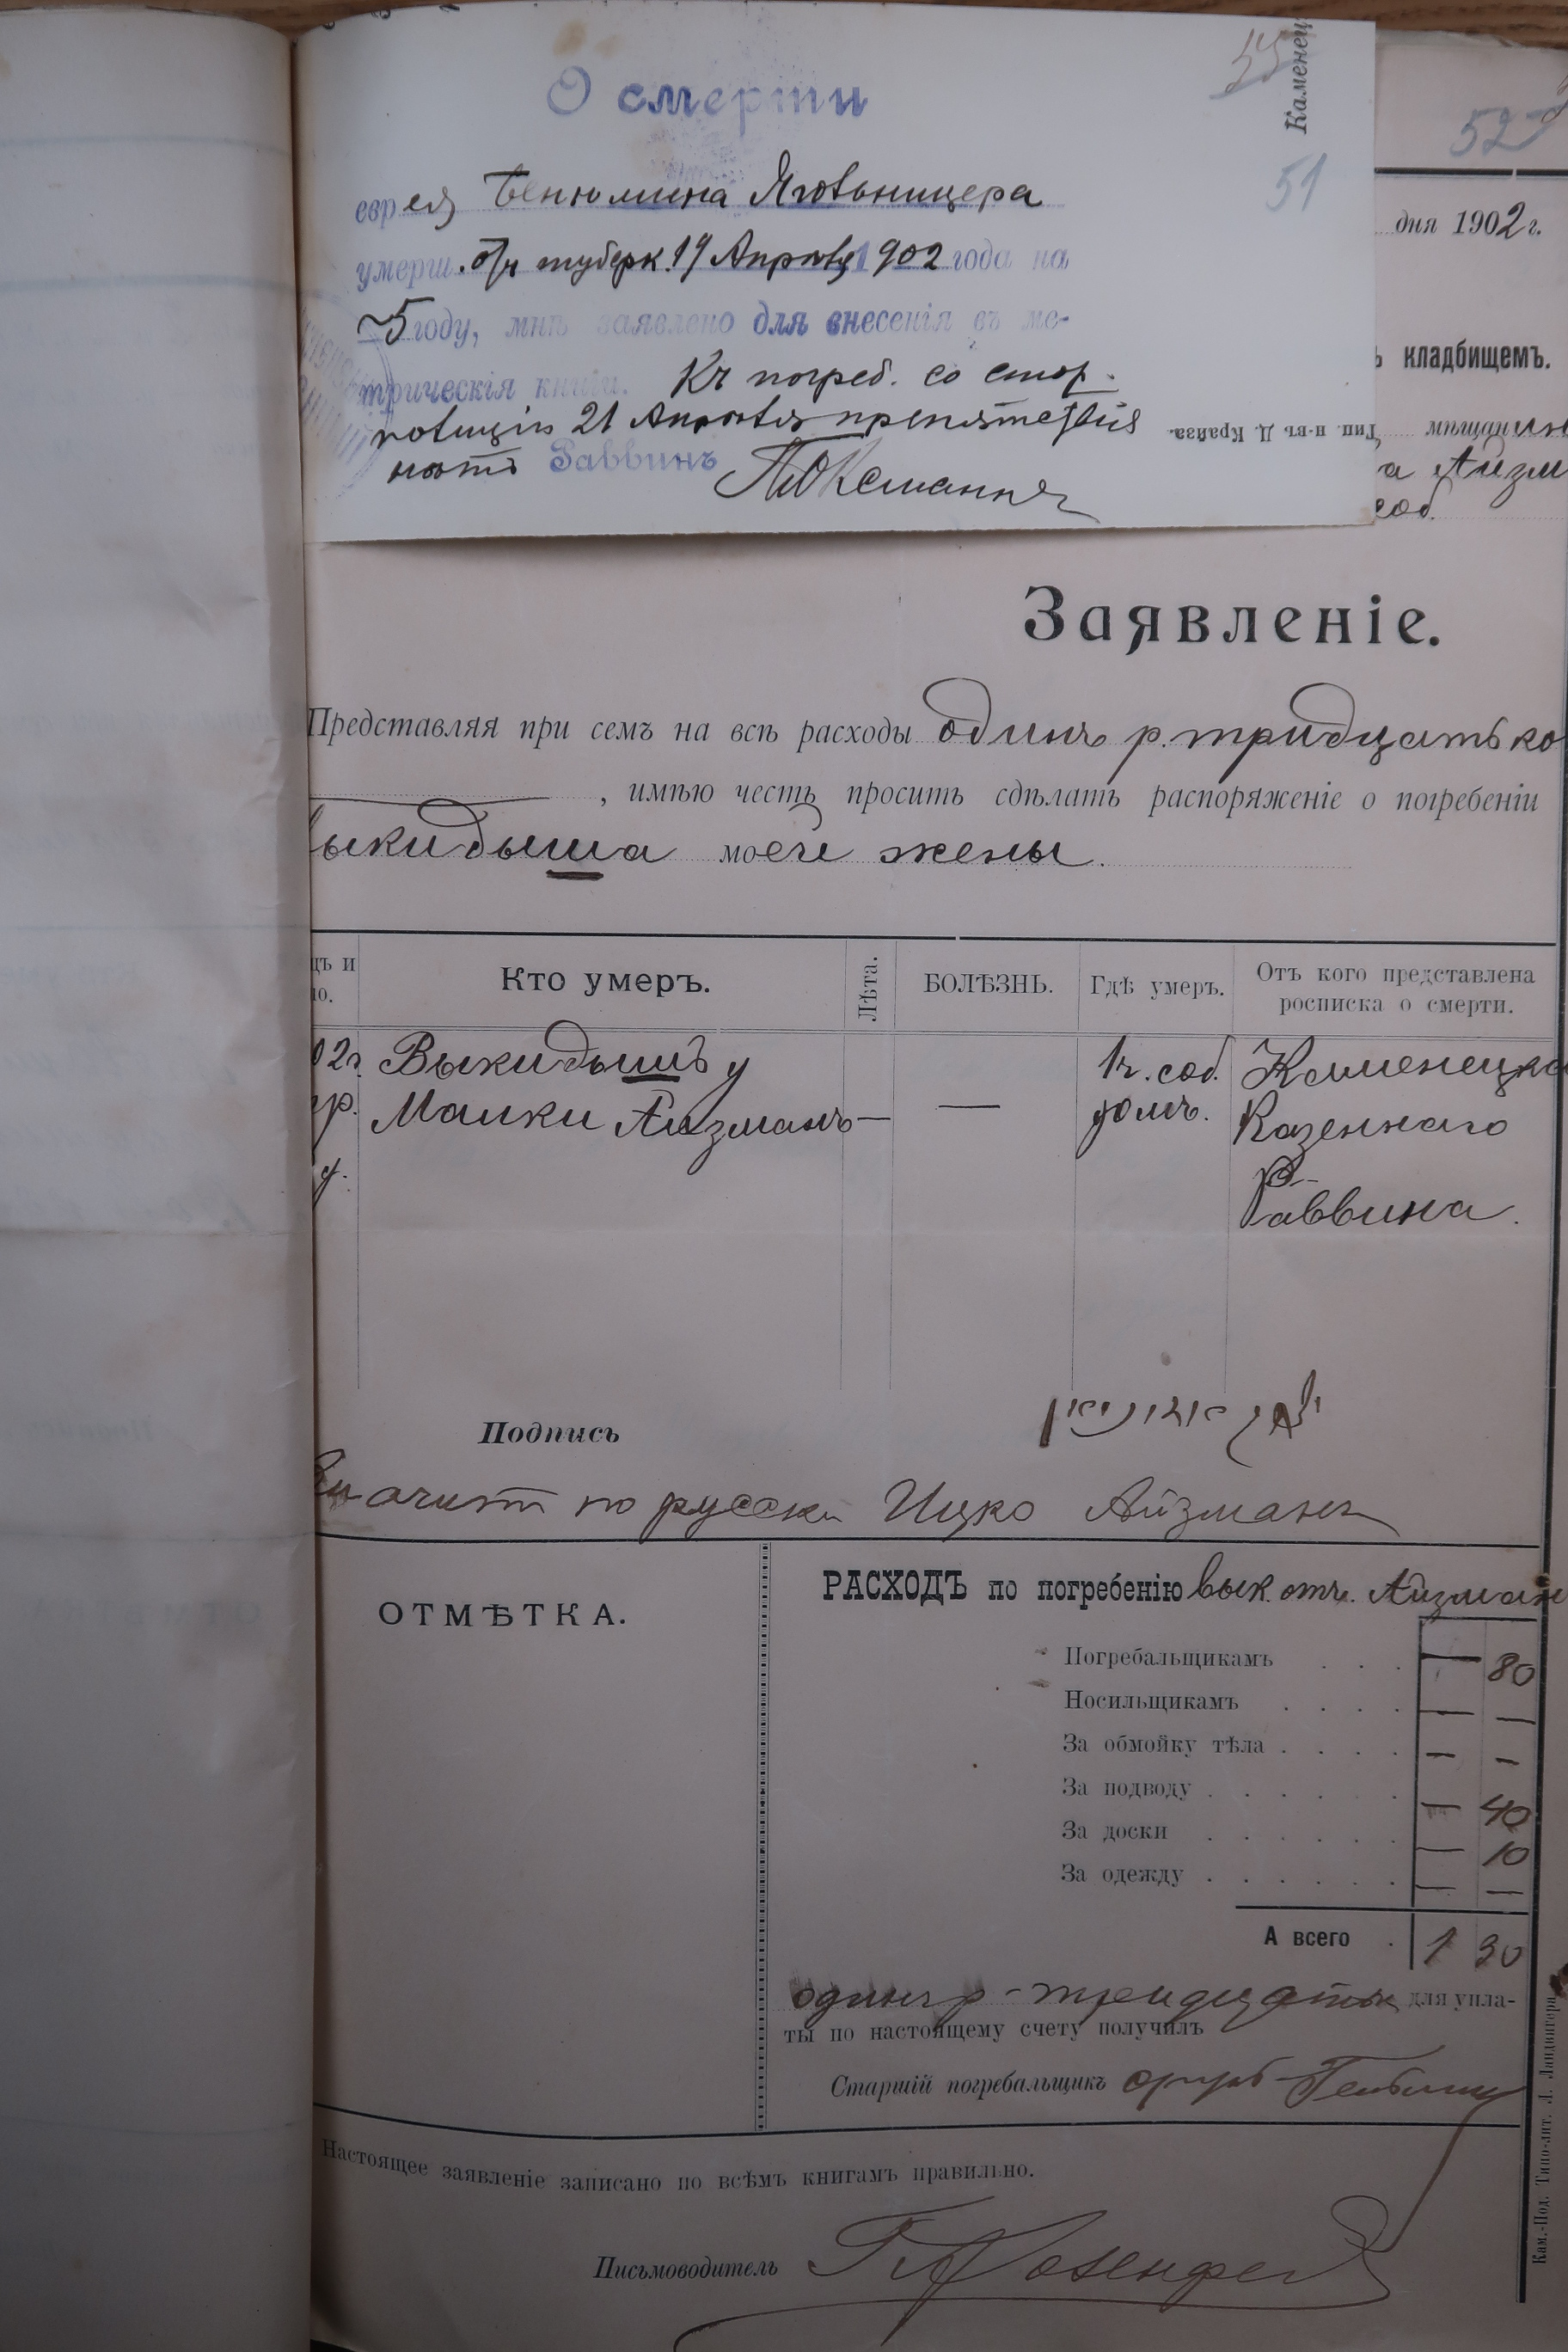 О смерти
55
Каменец
еврея Бенюмина Яговницера
51
умерш. отъ туберк. 19 Апрѣля 1902 года на
5 году, мнѣ заявлено для внесенія въ ме-
трическія книги. Къ погреб. со стор.
полиціи 21 Апрѣля препятствія
нѣтъ Раввинъ
Тип. н-въ Д. Крайза
52
дня 1902 г.
ъ кладбищемъ.
мѣщанин
а Айзм
соб.
Заявленіе.
Представляя при семъ на всѣ расходы одинъ р. тридцать ко
, имѣю честь просить сдѣлать распоряженіе о погребеніи
выкидыша моей жены.
цъ и
ло.
Кто умеръ.
Лѣта.
БОЛѢЗНЬ.
Гдѣ умеръ.
Отъ кого представлена
росписка о смерти.
02г. Выкидышъ у — 1ч. соб. Каменецка
пр. Малки Айзманъ — домъ. Казеннаго
Раввина.
Подпись
Значит по русски Ицко Айзманъ
ОТМѢТКА.
РАСХОДЪ по погребенію вык. отъ. Айзман
Погребальщикамъ . . . — 80
Носильщикамъ . . . . — —
За обмойку тѣла . . . . — —
За подводу . . . . . . — 40
За доски . . . . . . — 10
За одежду . . . . . . — —
А всего . 1 30
одинъ р - тридцать для упла-
ты по настоящему счету получилъ
Старшій погребальщикъ
Настоящее заявленіе записано по всѣмъ книгамъ правильно.
Письмоводитель Розенфельд
Кам.-Под. Типо-лит. Л. Ландвигера